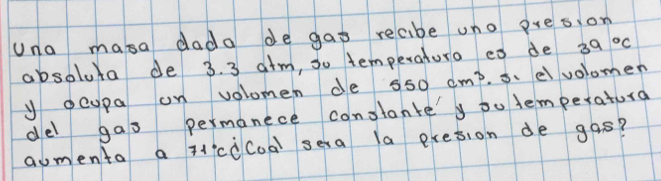 Una masa dada de gas recibe una presion
absoluta de 3.3 atm, su temperatura es de 39 °C
y ocupa un volumen de 550 cm³. si el volumen
del gas permanece constante y su temperatura
aumenta a 71°c ¿Cual sera la presion de gas?